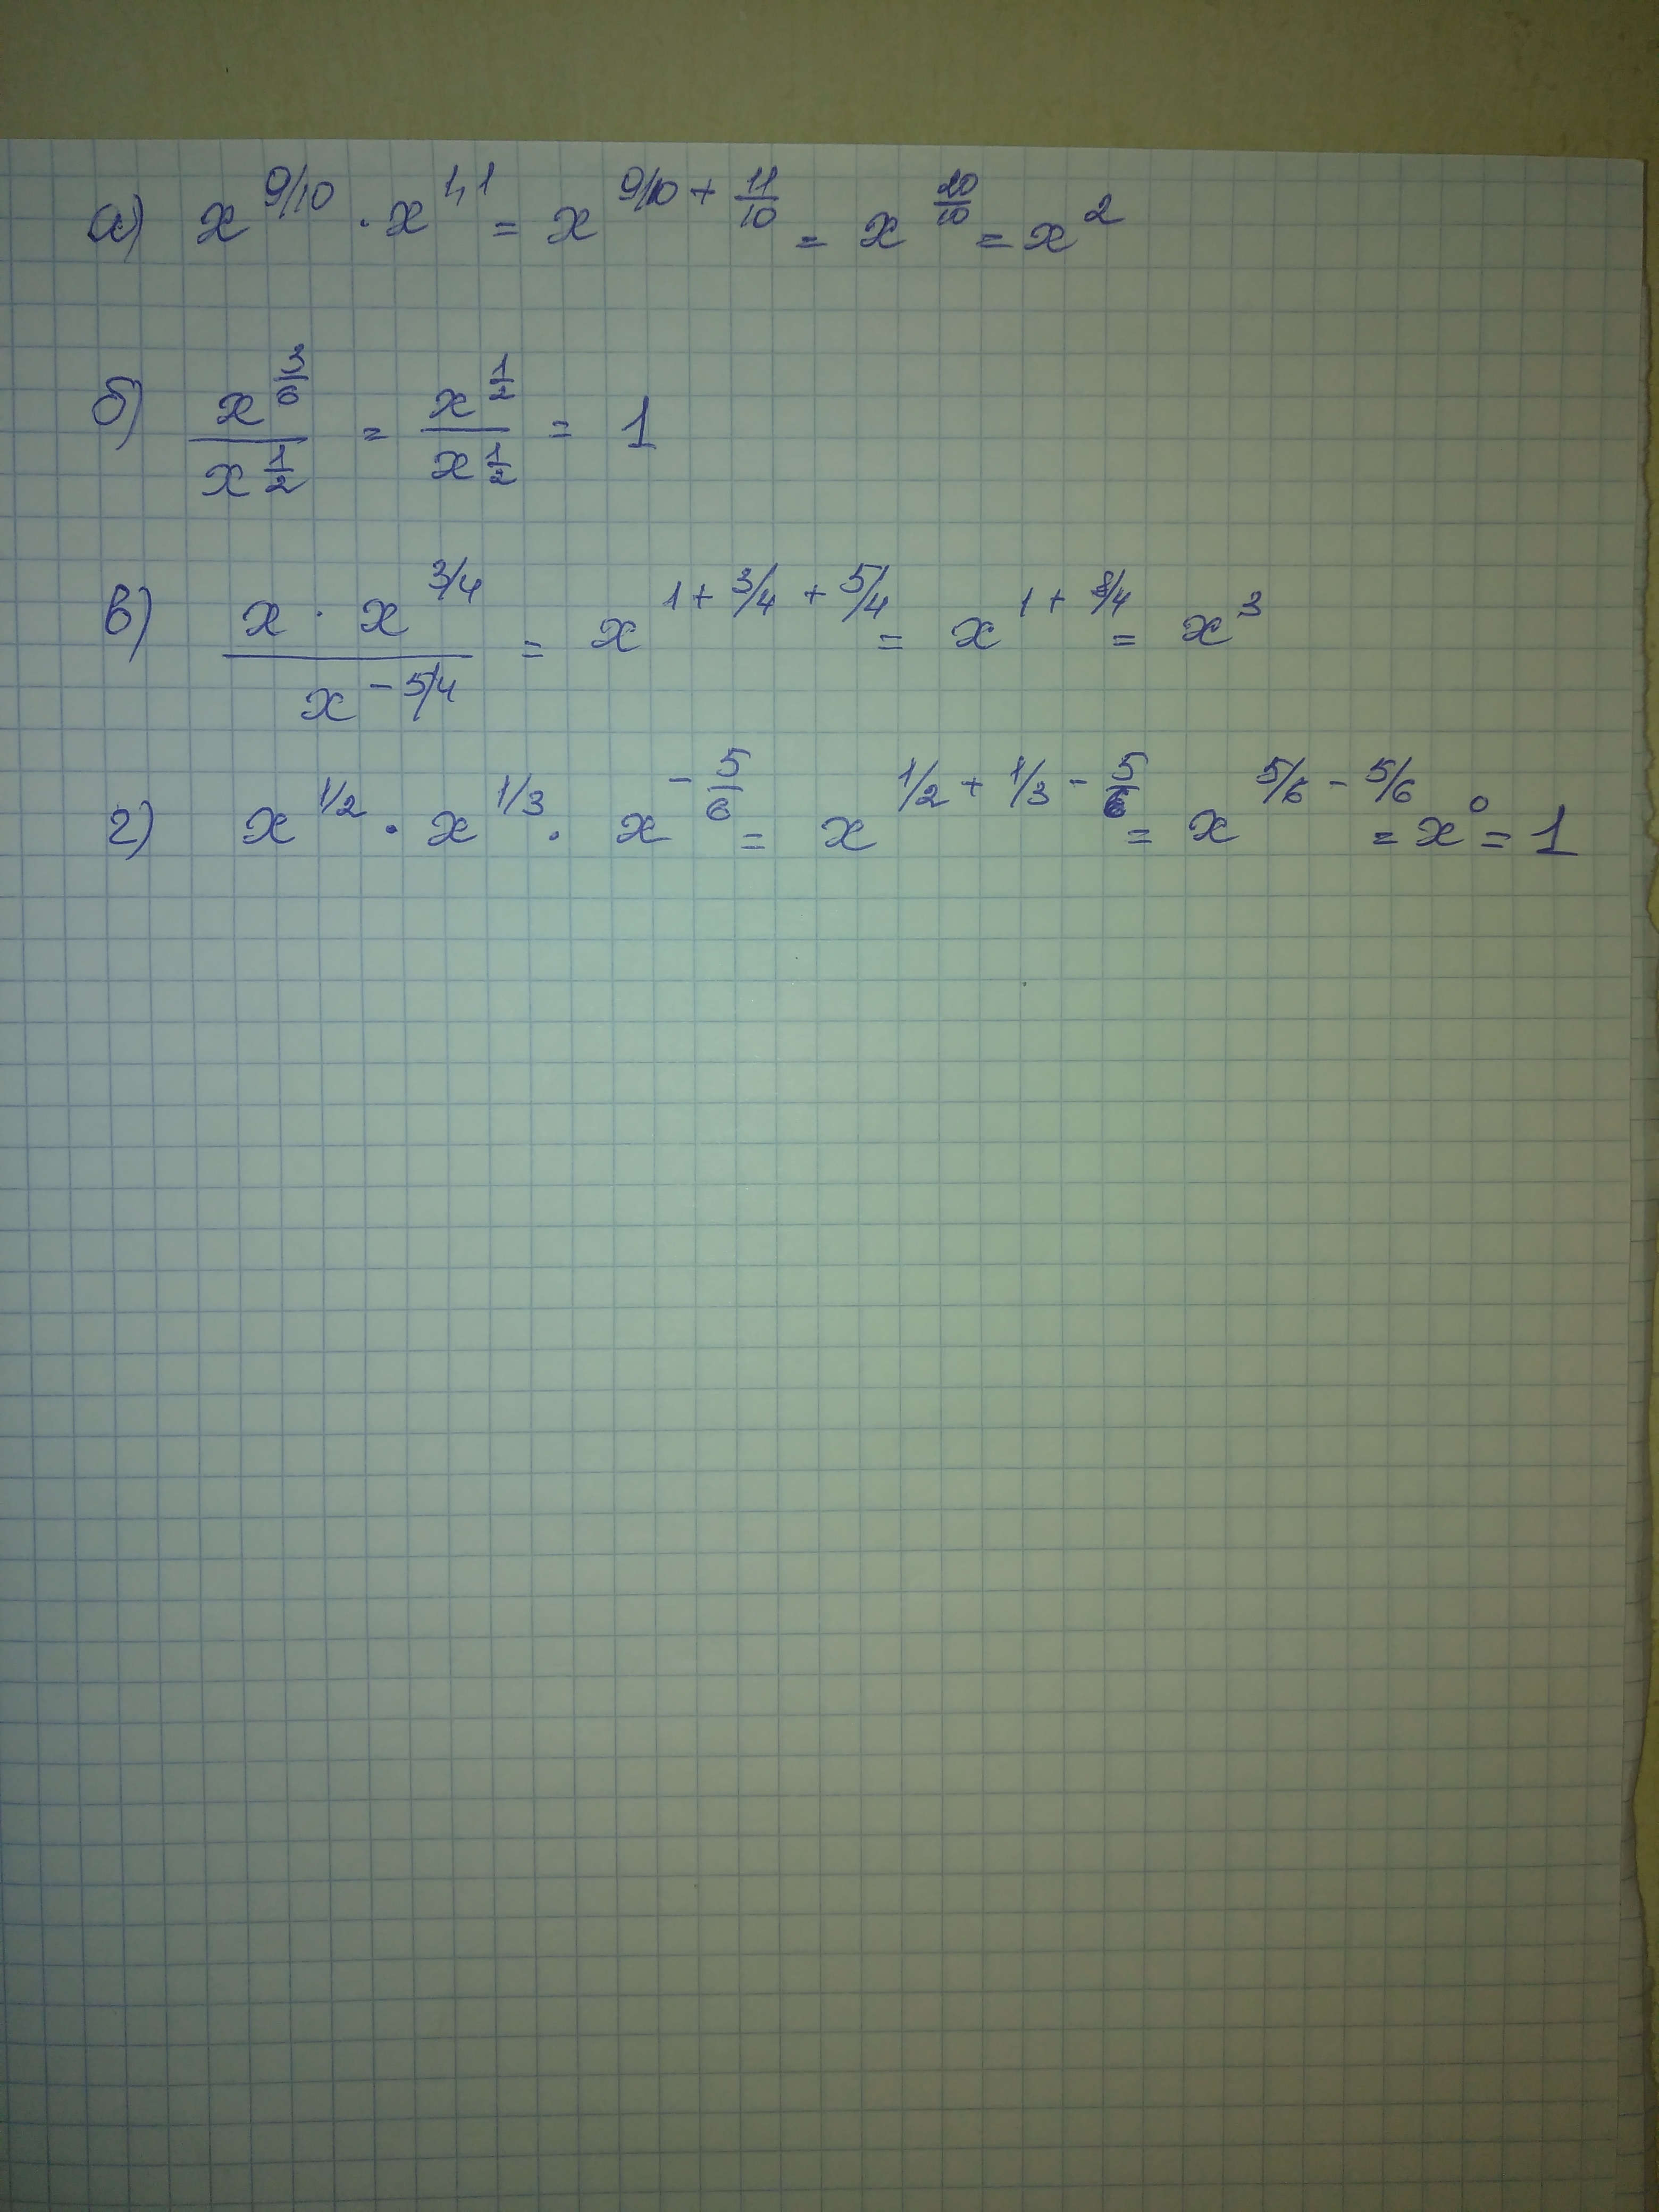 а) x^(9/10) · x^(1,1) = x^(9/10 + 11/10) = x^(20/10) = x^2
б) x^(3/6) / x^(1/2) = x^(1/2) / x^(1/2) = 1
в) (x · x^(3/4)) / x^(-5/4) = x^(1 + 3/4 + 5/4) = x^(1 + 8/4) = x^3
г) x^(1/2) · x^(1/3) · x^(-5/6) = x^(1/2 + 1/3 - 5/6) = x^(5/6 - 5/6) = x^0 = 1